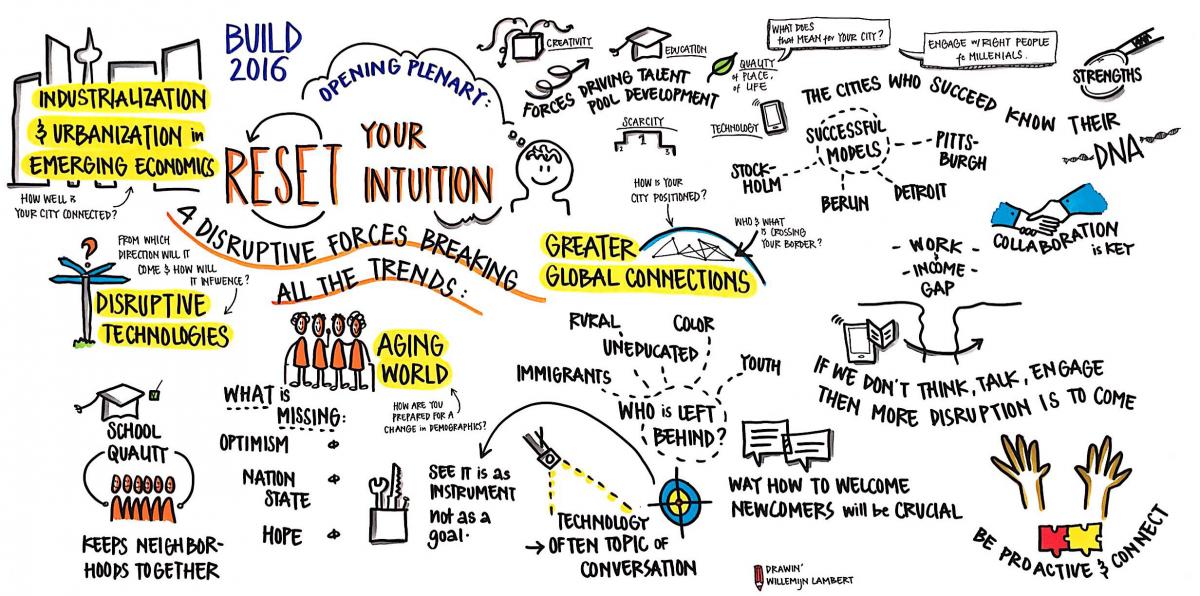 BUILD
2016
OPENING PLENARY:
RESET
YOUR
INTUITION
4 DISRUPTIVE FORCES BREAKING
ALL THE TRENDS:
INDUSTRIALIZATION
& URBANIZATION in
EMERGING ECONOMICS
HOW WELL is
YOUR CITY CONNECTED?
FROM WHICH
DIRECTION WILL IT
COME & HOW WILL
IT INFLUENCE?
DISRUPTIVE
TECHNOLOGIES
AGING
WORLD
HOW ARE YOU
PREPARED FOR A
CHANGE in DEMOGRAPHICS?
GREATER
GLOBAL CONNECTIONS
HOW is YOUR
CITY POSITIONED?
WHO & WHAT
is CROSSING
YOUR BORDER?
CREATIVITY
EDUCATION
QUALITY
of PLACE,
of LIFE
FORCES DRIVING TALENT
POOL DEVELOPMENT
SCARCITY
2 1 3
TECHNOLOGY
WHAT DOES
that MEAN for YOUR CITY?
ENGAGE w/ RIGHT PEOPLE
fe MILLENIALS.
STRENGTHS
THE CITIES WHO SUCCEED KNOW THEIR
DNA
SUCCESSFUL
MODELS
STOCK-
HOLM
BERLIN
DETROIT
PITTS-
BURGH
COLLABORATION
is KEY
- WORK -
- INCOME -
GAP
IF WE DON'T THINK, TALK, ENGAGE
THEN MORE DISRUPTION IS TO COME
SCHOOL
QUALITY
KEEPS NEIGHBOR-
HOODS TOGETHER
WHAT is
MISSING:
OPTIMISM
NATION
STATE
HOPE
SEE IT is as
INSTRUMENT
not as a
goal.
TECHNOLOGY
→ OFTEN TOPIC of
CONVERSATION
RURAL
COLOR
UNEDUCATED
IMMIGRANTS
YOUTH
WHO is LEFT
BEHIND?
WAY HOW TO WELCOME
NEWCOMERS will be CRUCIAL
BE PROACTIVE & CONNECT
DRAWIN'
WILLEMIJN LAMBERT